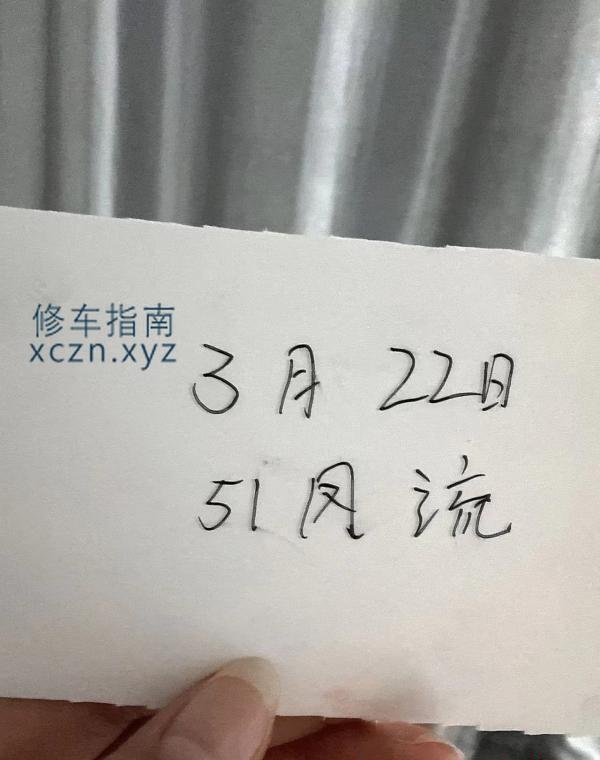 修车指南
xczn.xyz
3月22日
51风流